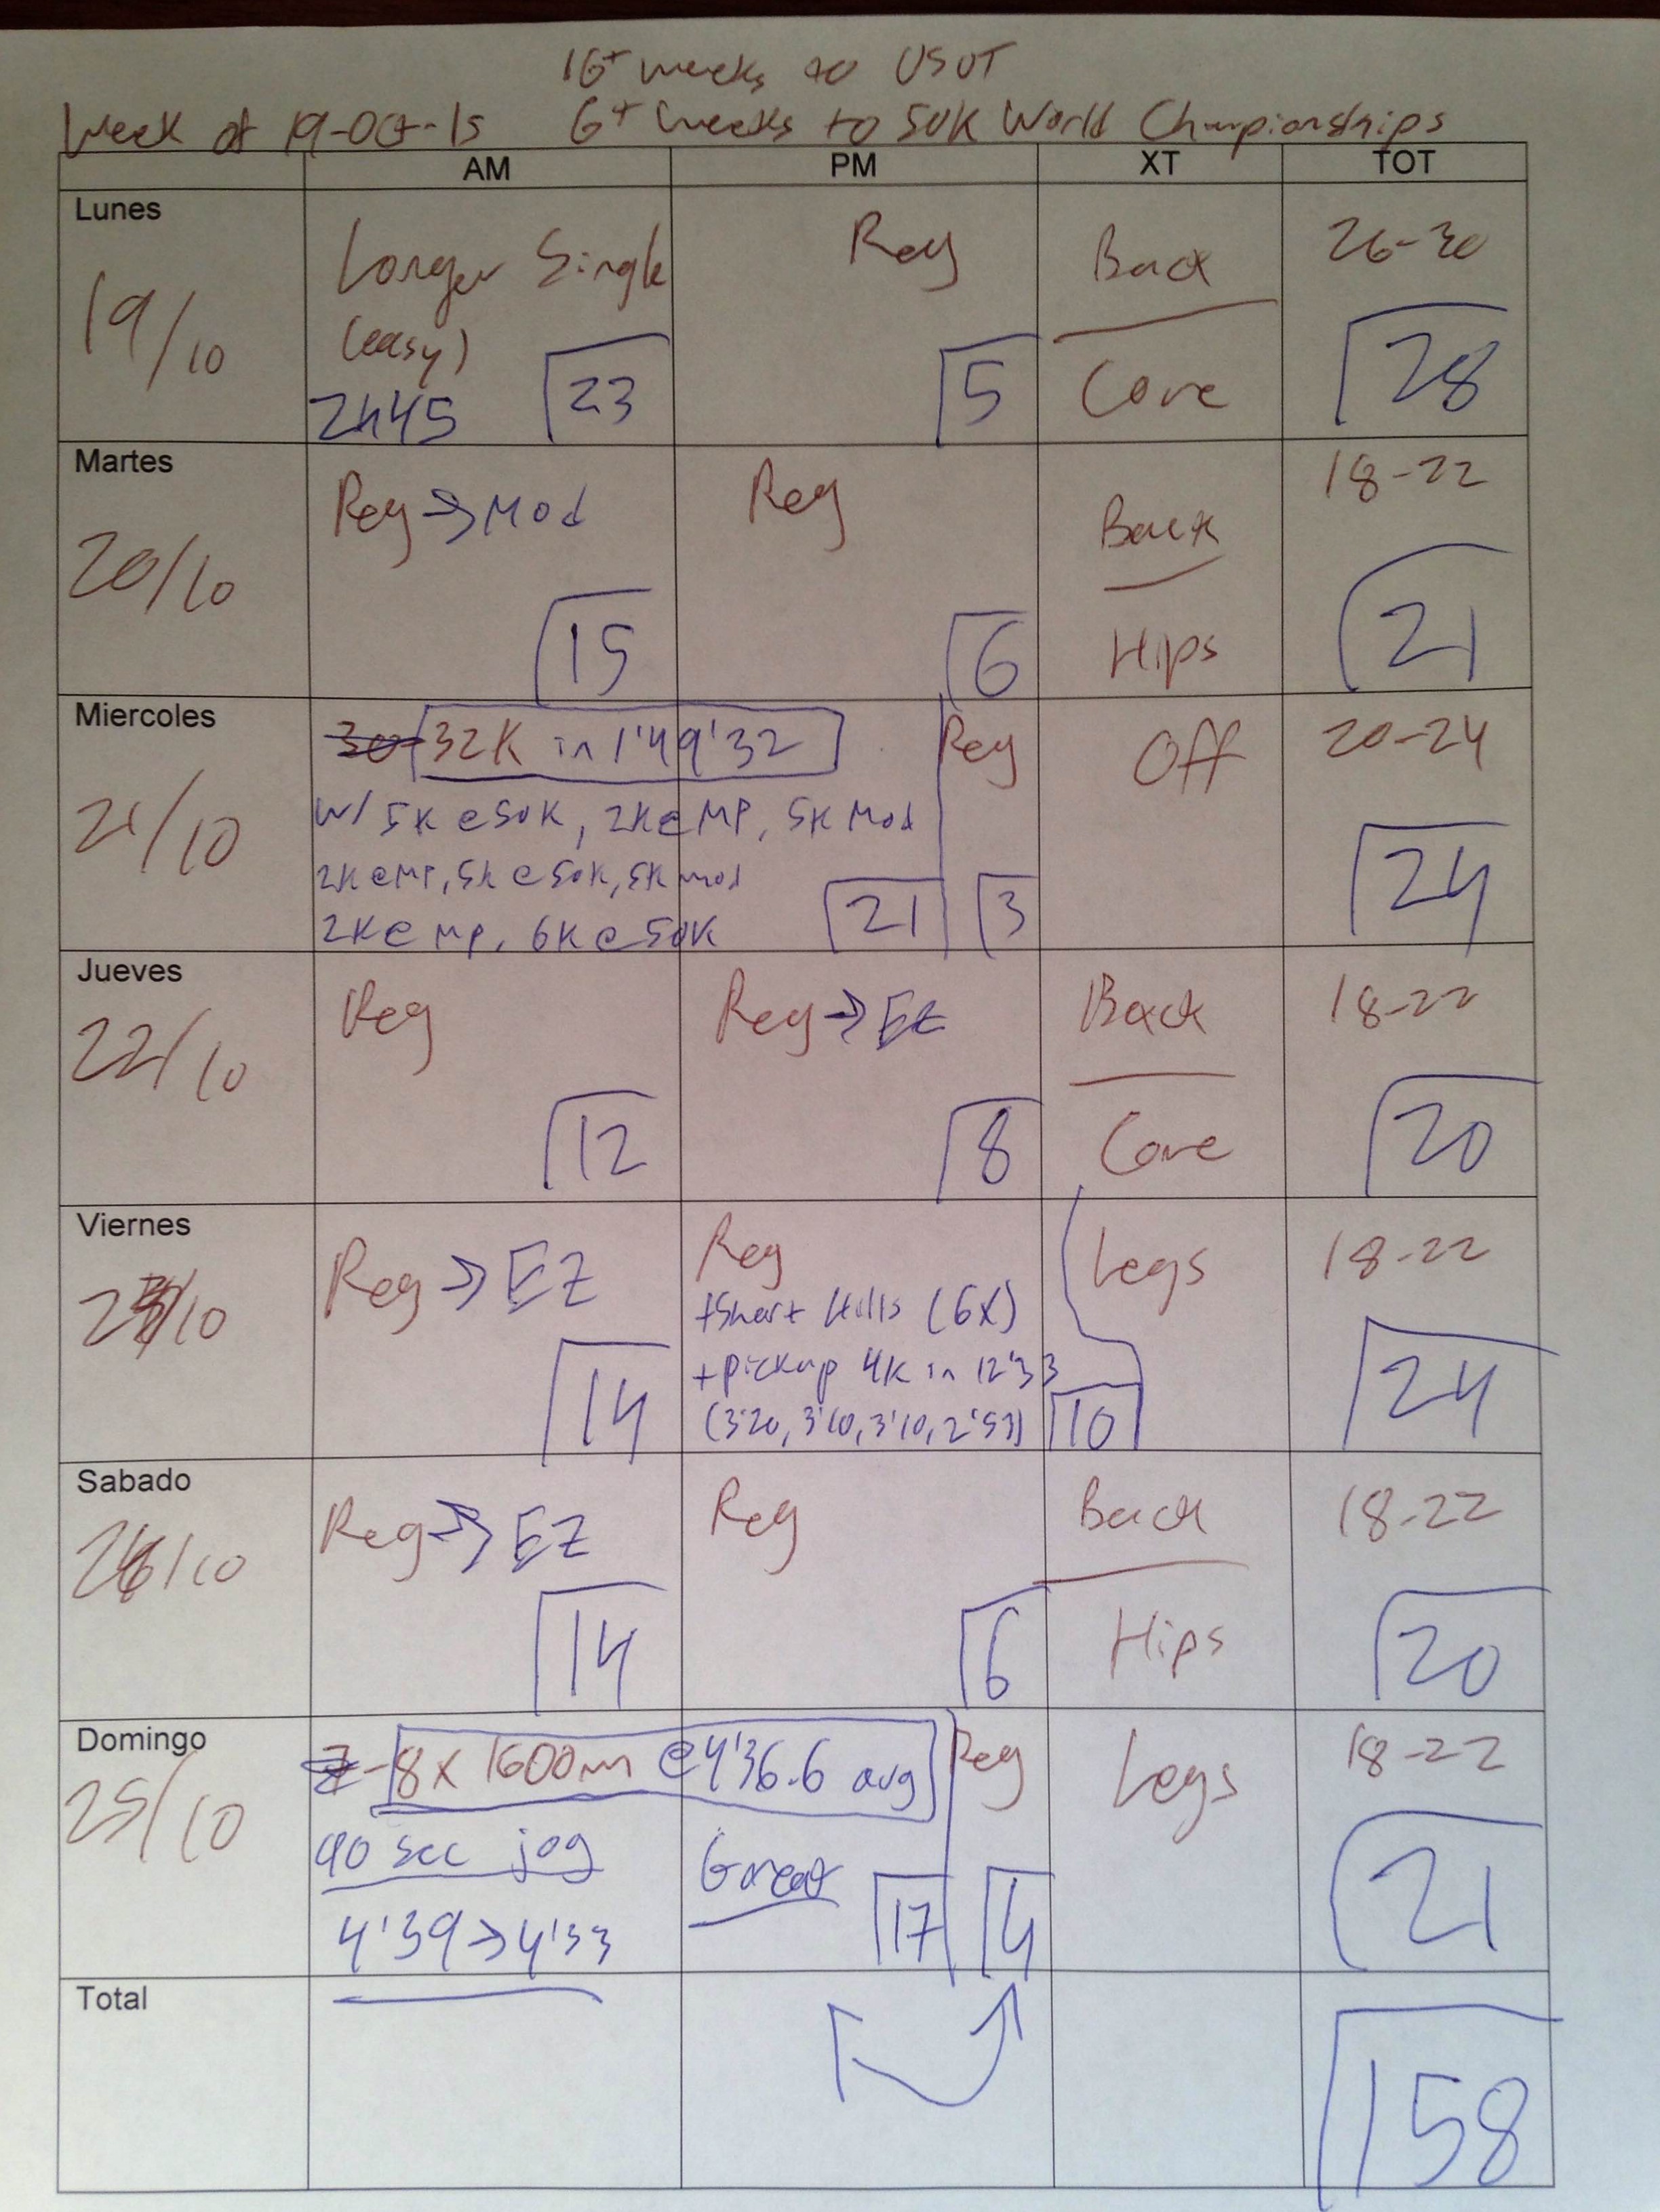 16+ weeks to USOT
Week of 19-Oct-15 6+ weeks to 50K World Championships
AM PM XT TOT
Lunes
19/10
Longer Single
(easy)
2h45
23
Reg
5
Back
Core
26-30
28
Martes
20/10
Reg → Mod
15
Reg
6
Back
Hips
18-22
21
Miercoles
21/10
30-32K in 1'49'32
w/ 5K @ 50K, 2K @ MP, 5K Mod
2K @ MP, 5K @ 50K, 5K mod
2K @ MP, 6K @ 50K
21
Reg
3
Off
20-24
24
Jueves
22/10
Reg
12
Reg → EZ
8
Back
Core
18-22
20
Viernes
23/10
Reg → EZ
14
Reg
+Short Hills (6x)
+pickup 4K in 12'33
(3'20, 3'10, 3'10, 2'53)
10
Legs
18-22
24
Sabado
24/10
Reg → EZ
14
Reg
6
Back
Hips
18-22
20
Domingo
25/10
7-8x 1600m @ 4'36.6 avg
90 sec jog
4'39 → 4'33
Great
17
Reg
4
Legs
18-22
21
Total
158